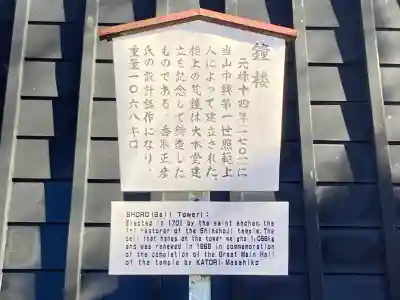 鐘楼
元禄十四年(一七〇一)に
当山中興第一世照範上
人によって建立された。
楼上の梵鐘は大本堂建
立を記念して鋳造した
ものである。香取正彦
氏の設計鋳作になり、
重量一〇六八キロ
SHORO(Bell Tower):
Erected in 1701 by the saint Shohan, the
1st restorer of the Shinshoji temple. The
bell that hangs on the tower weighs 1,068kg
and was renewed in 1968 in commemoration
of the completion of the Great Main Hall
of the temple by KATORI-Masahiko